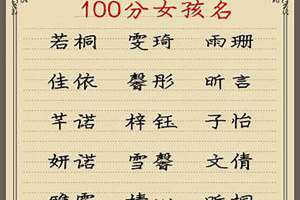 100分女孩名
若桐 雯琦 雨珊
佳依 馨彤 昕言
芊诺 梓钰 子怡
妍诺 雪馨 文倩